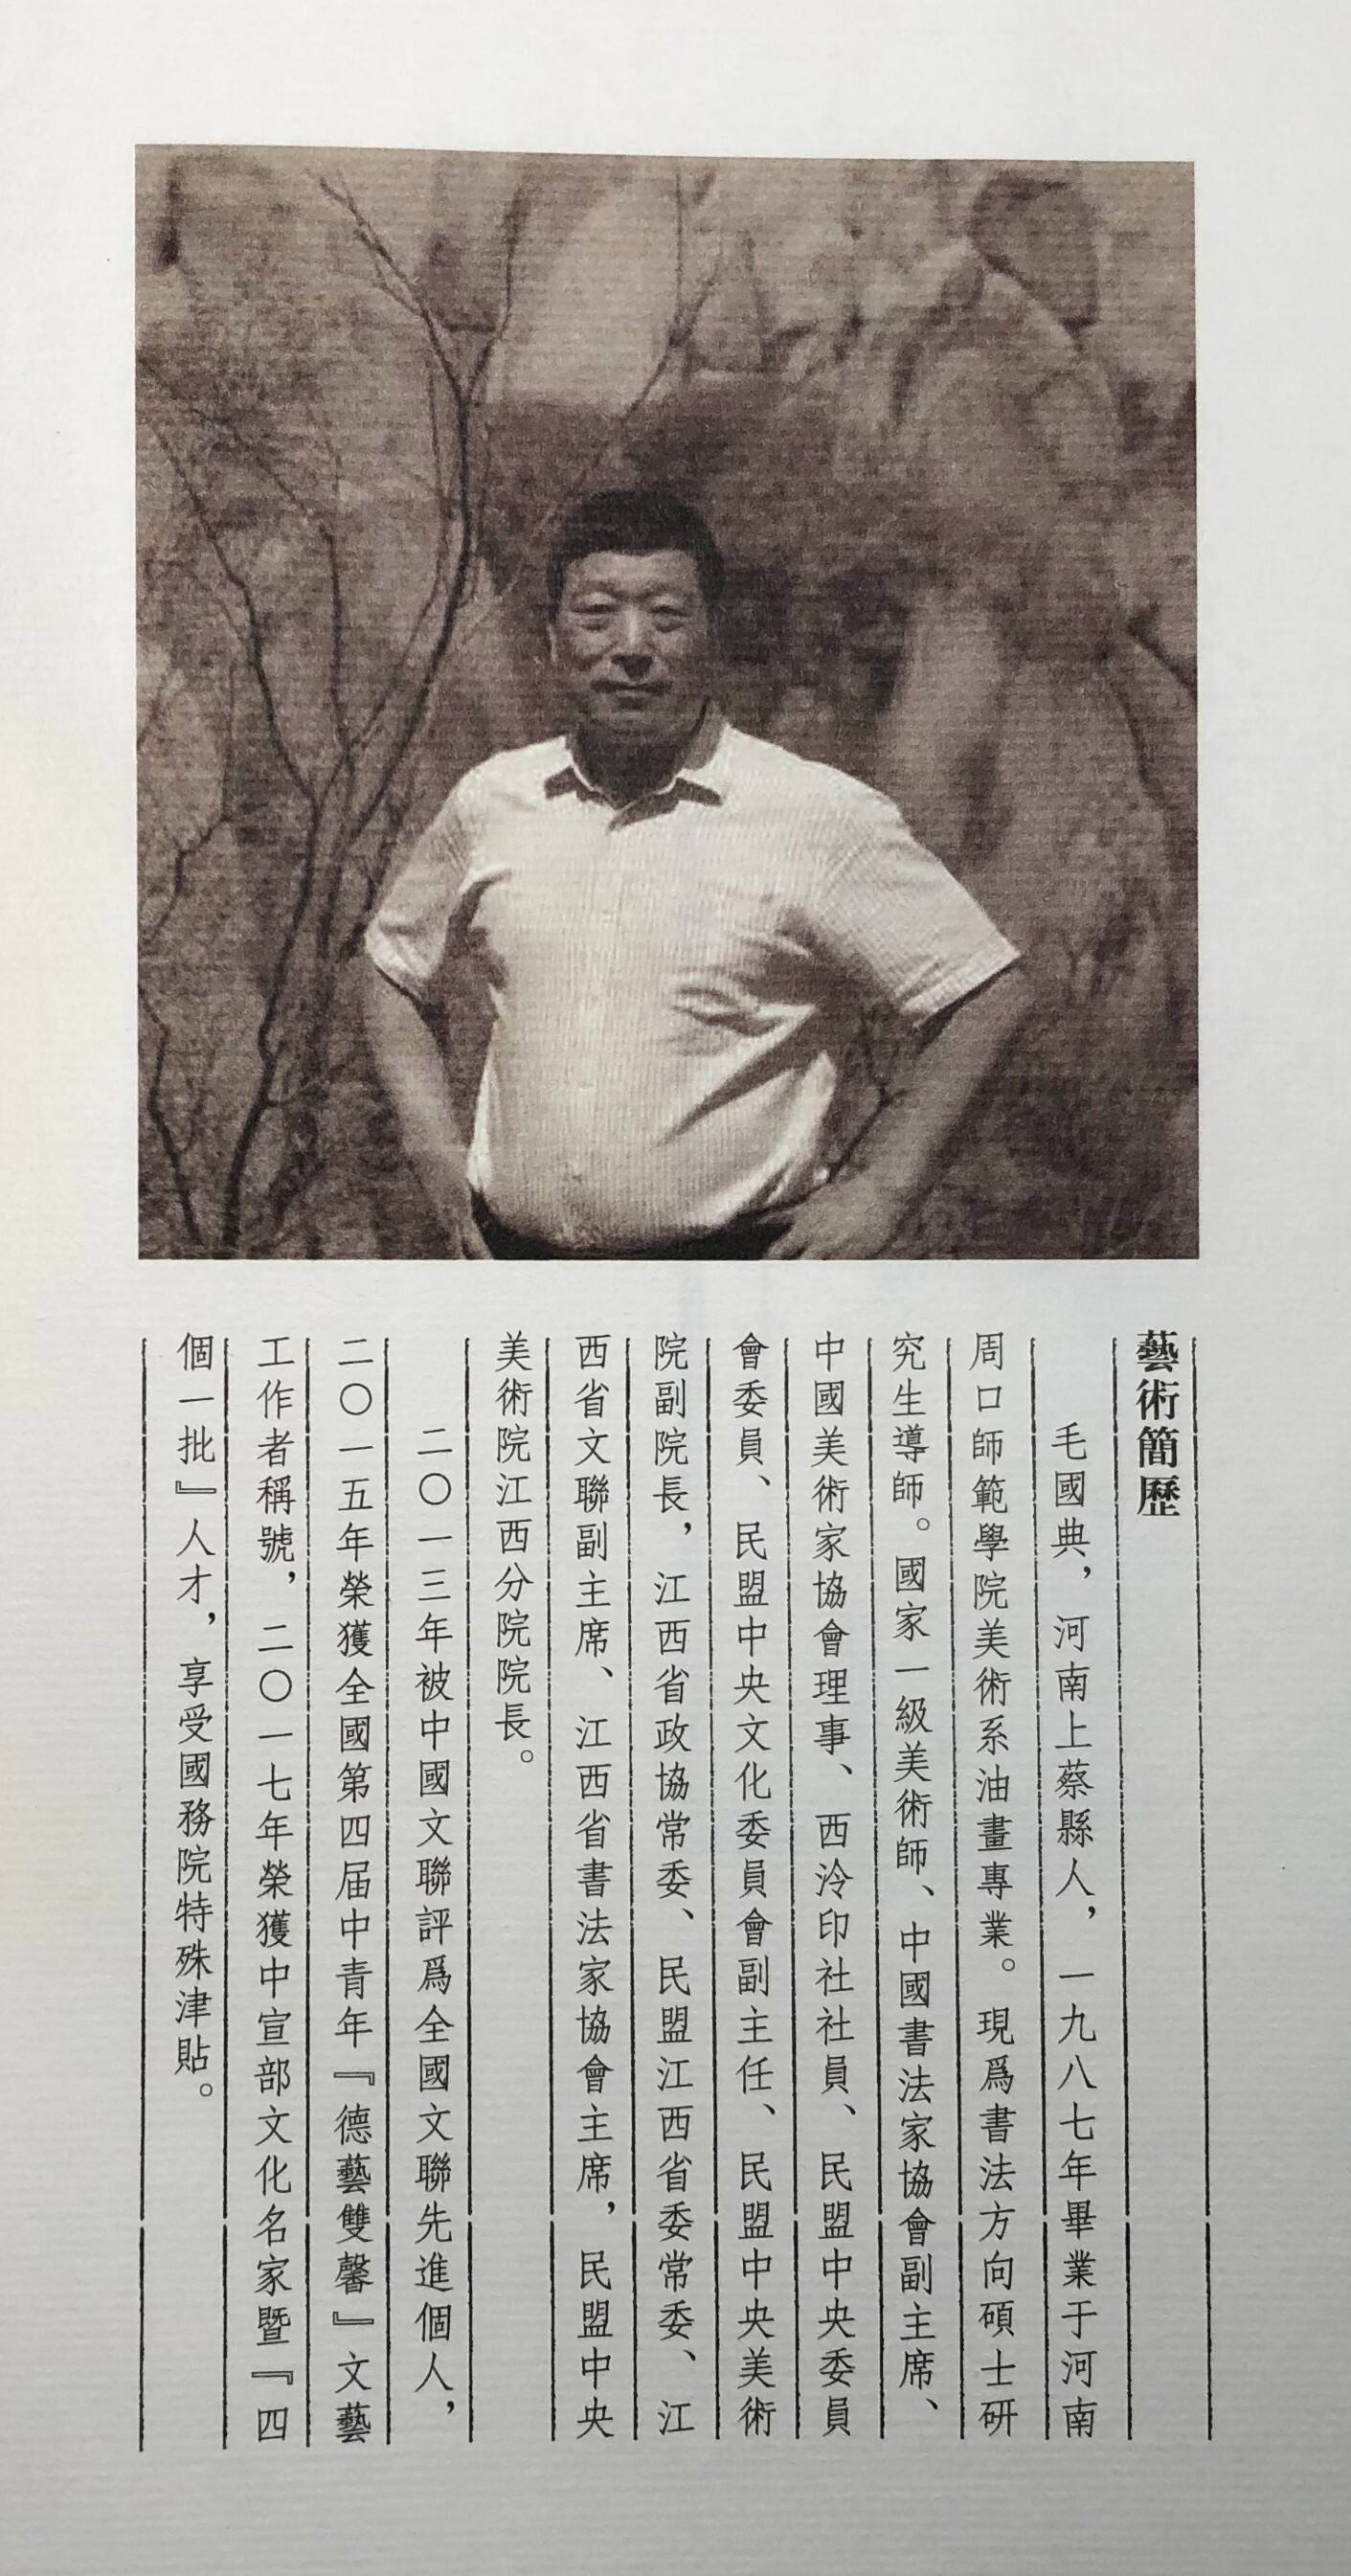 藝術簡歷
毛國典，河南上蔡縣人，一九八七年畢業于河南
周口師範學院美術系油畫專業。現爲書法方向碩士研
究生導師。國家一級美術師、中國書法家協會副主席、
中國美術家協會理事、西泠印社社員、民盟中央委員
會委員、民盟中央文化委員會副主任、民盟中央美術
院副院長，江西省政協常委、民盟江西省委常委、江
西省文聯副主席、江西省書法家協會主席，民盟中央
美術院江西分院院長。
二〇一三年被中國文聯評爲全國文聯先進個人，
二〇一五年榮獲全國第四届中青年『德藝雙馨』文藝
工作者稱號，二〇一七年榮獲中宣部文化名家暨『四
個一批』人才，享受國務院特殊津貼。